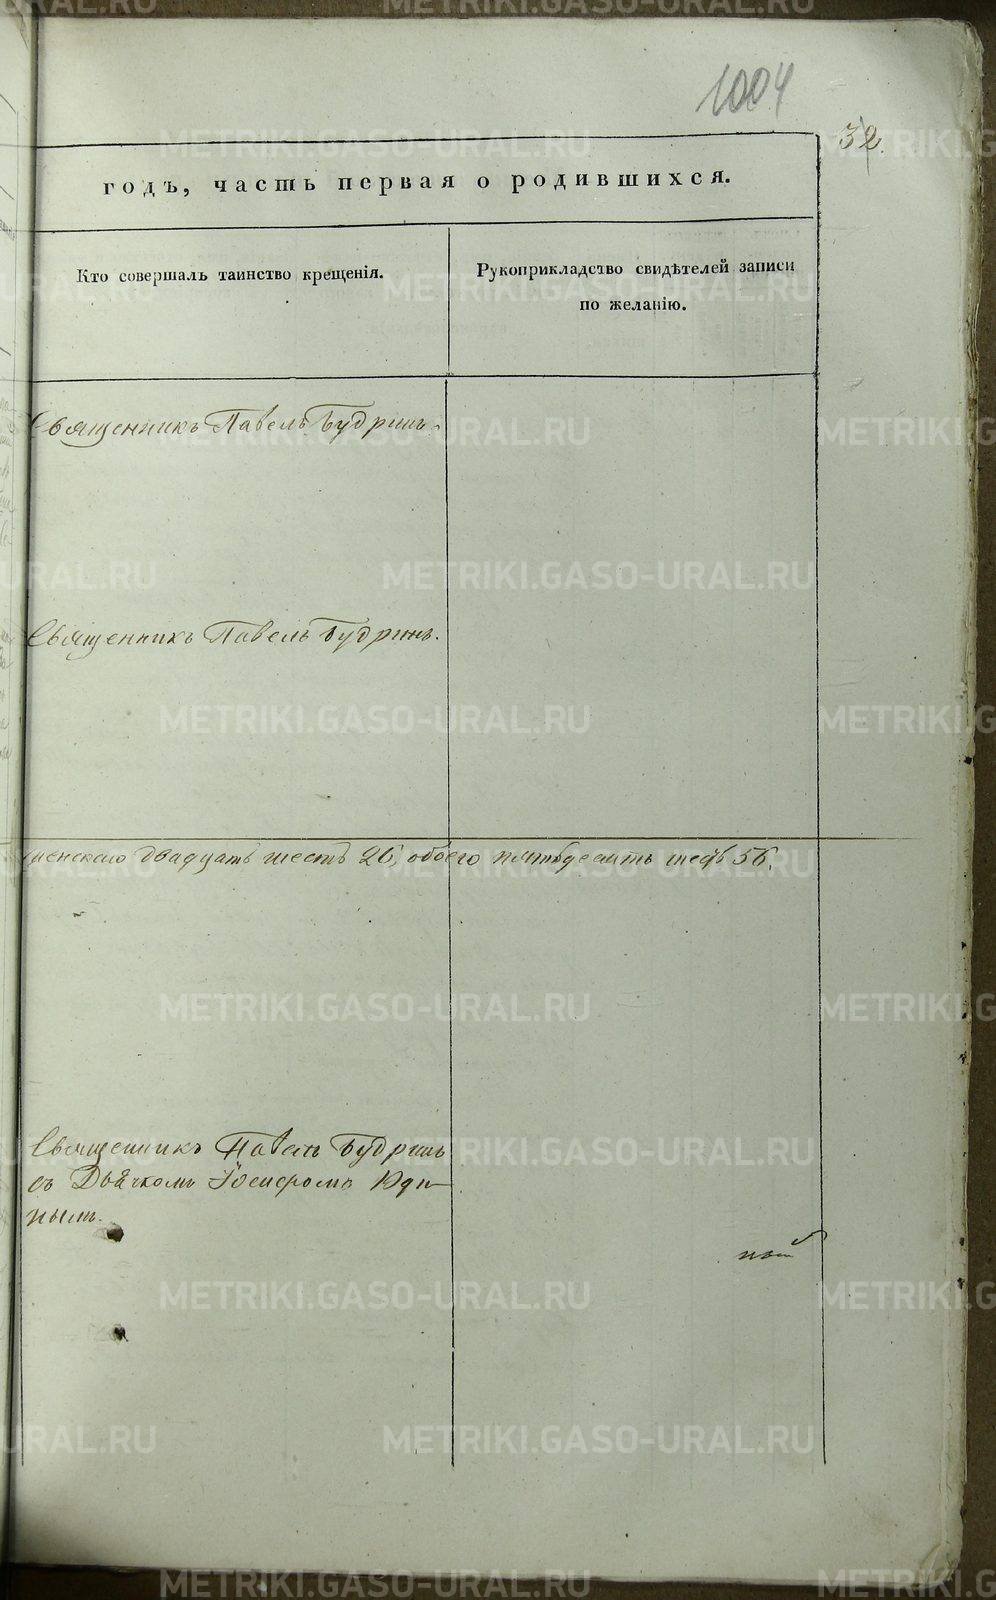 1004
32
годъ, часть первая о родившихся.
Кто совершалъ таинство крещенія.
Рукоприкладство свидѣтелей записи
по желанію.
Священникъ Павелъ Будринъ.
Священникъ Павелъ Будринъ.
женскаго двадцать шесть 26, обоего пятьдесятъ шесть 56.
Священникъ Павелъ Будринъ
съ Дьячкомъ
METRIKI.GASO-URAL.RU